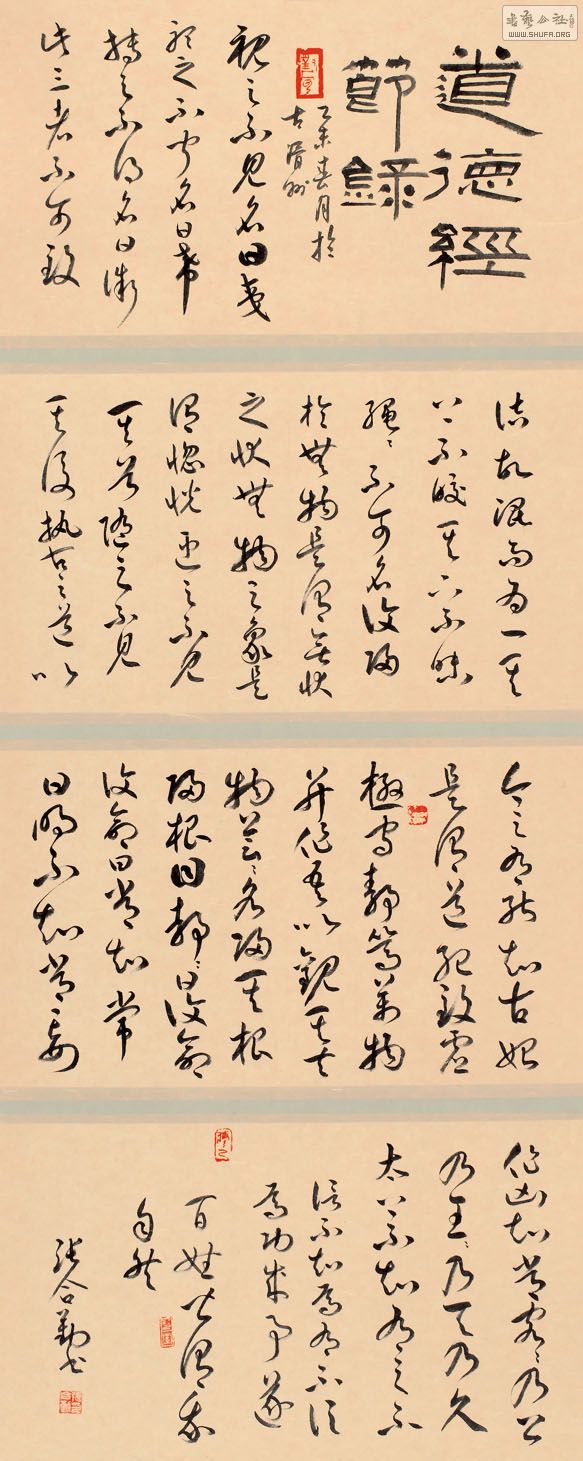 道德經
節錄
乙未春月於
古滑州
視之不見名曰夷
聽之不聞名曰希
搏之不得名曰微
此三者不可致
詰故混而為一其
上不皦其下不昧
繩〻不可名復歸
於無物是謂無狀
之狀無物之象是
謂惚恍迎之不見
其首隨之不見
其後執古之道以
今之有能知古始
是謂道紀致虛
極守靜篤萬物
并作吾以觀其夫
物芸〻各歸其根
歸根曰靜〻曰復命
復命曰常知常
曰明不知常〻妄
作凶知常容〻乃公
乃王〻乃天乃久
太上不知有之不
信不知焉有不信
焉功成事遂
百姓皆謂我
自然
張合勤書
WWW.SHUFA.ORG